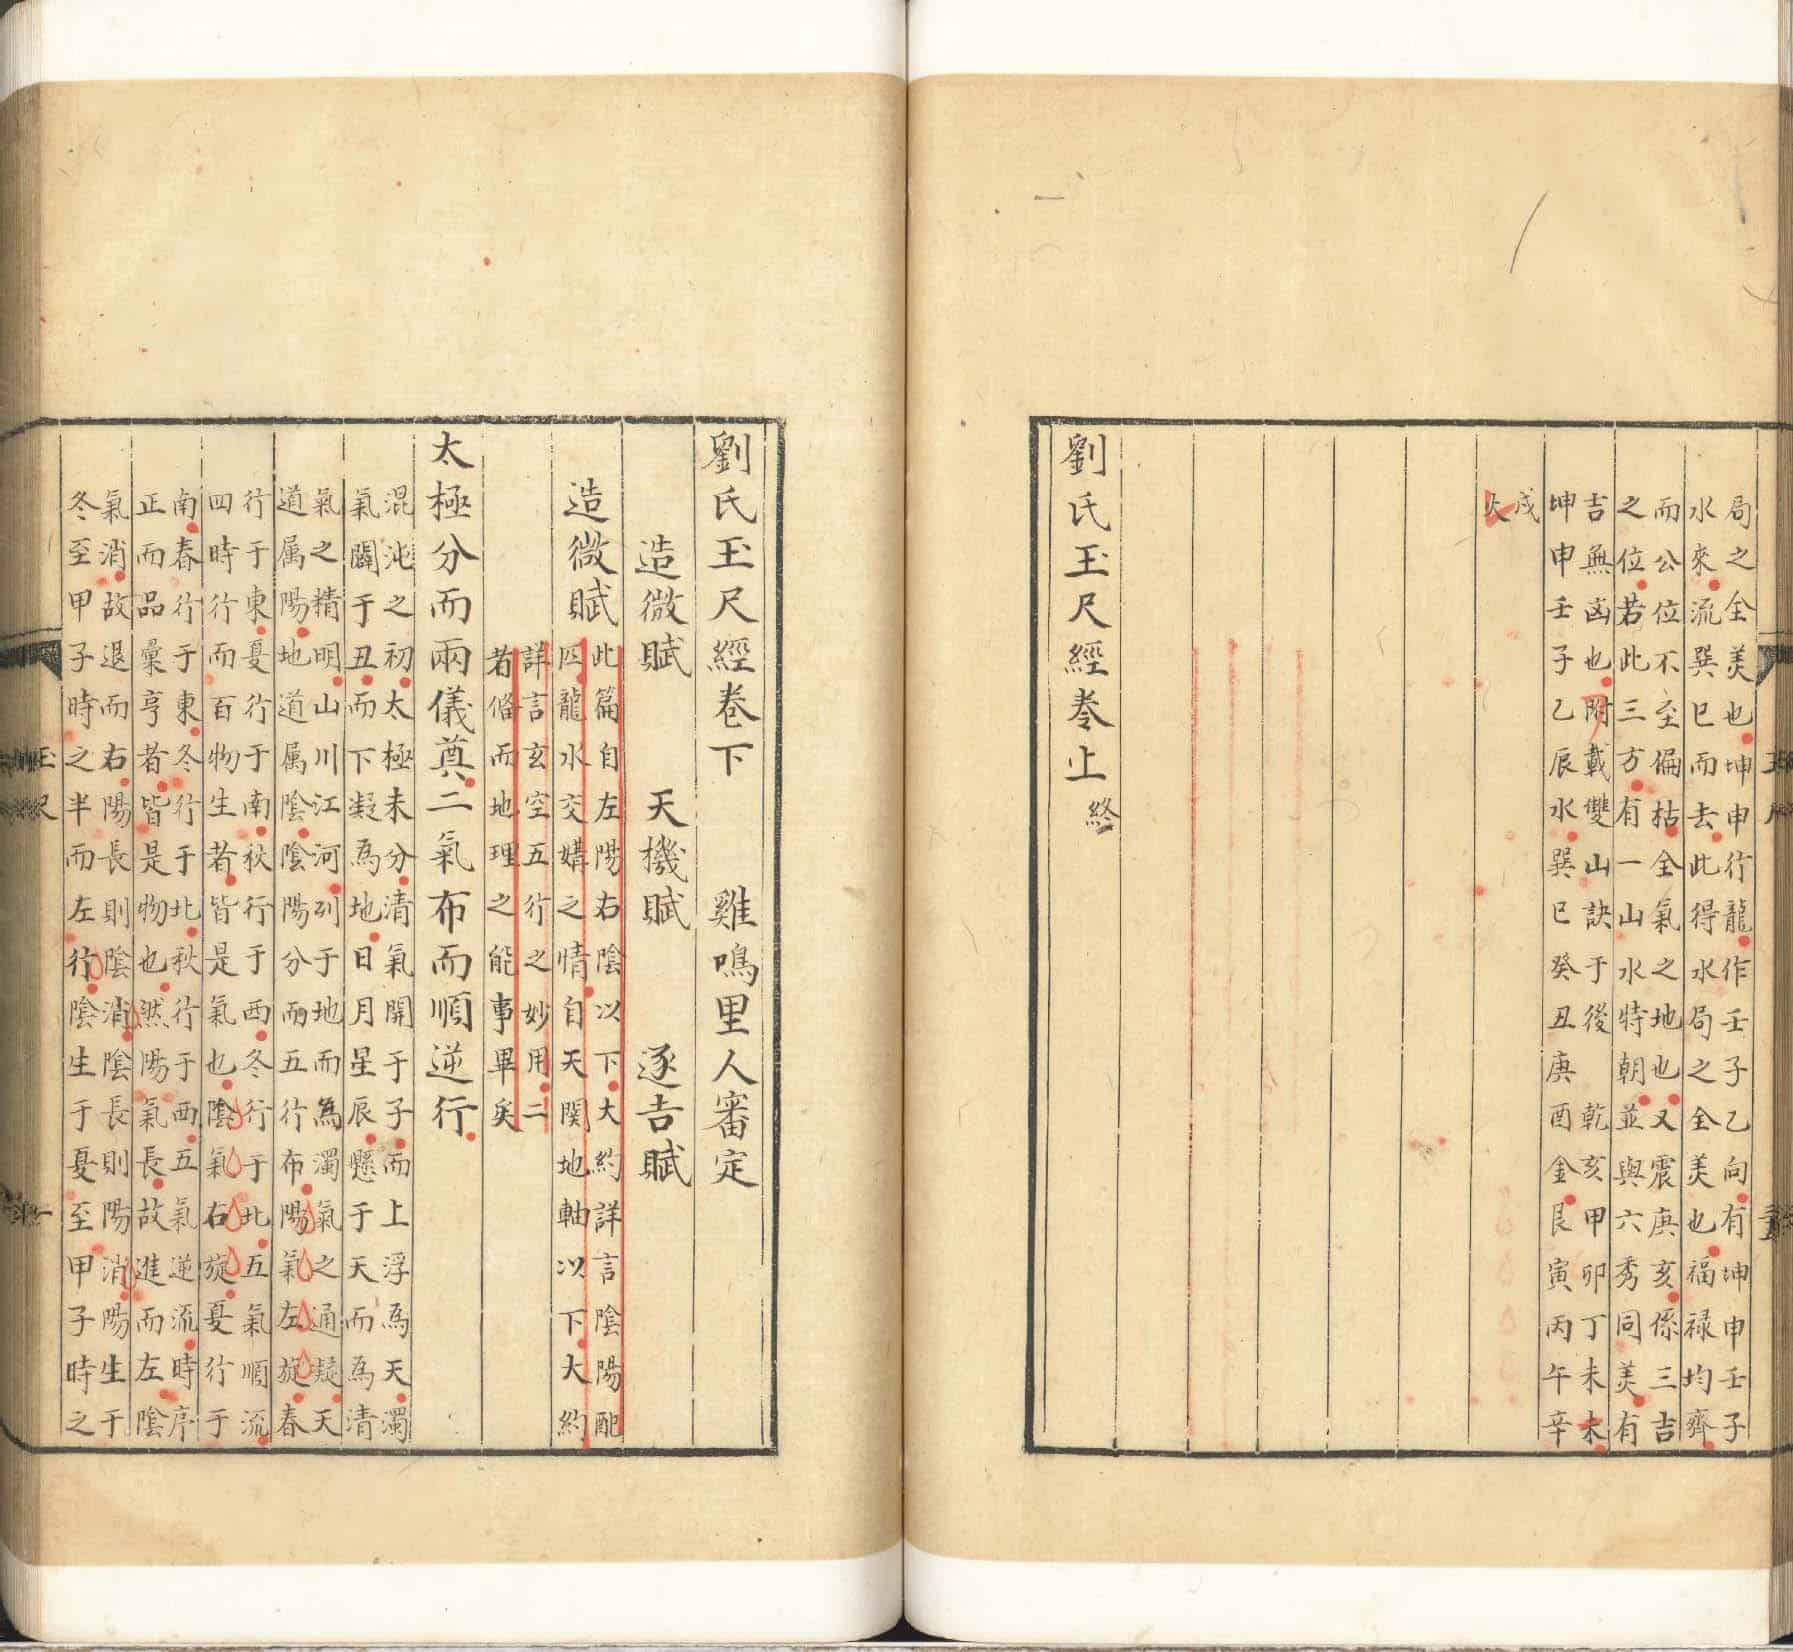 局之全美也坤申行龍作壬子乙向有坤申壬子
水來流巽巳而去此得水局之全美也福祿均齊
而公位不至偏枯全氣之地也又震庚亥係三吉
之位若此三方有一山水特朝並與六秀同美有
吉無凶也附載雙山訣于後 乾亥甲卯丁未未
坤申壬子乙辰水巽巳癸丑庚酉金艮寅丙午辛
戌
火
劉氏玉尺經卷上 終
劉氏玉尺經卷下 雞鳴里人審定
造微賦 天機賦 逐吉賦
造微賦
此篇自左陽右陰以下大約詳言陰陽配
匹龍水交媾之情自天関地軸以下大約
詳言玄空五行之妙用二
者俻而地理之能事畢矣
太極分而兩儀奠二氣布而順逆行
混沌之初太極未分清氣開于子而上浮為天濁
氣闢于丑而下凝為地日月星辰懸于天而為清
氣之精明山川江河列于地而為濁氣之通凝天
道属陽地道属陰陰陽分而五行布陽氣左旋春
行于東夏行于南秋行于西冬行于北五氣順流
四時行而百物生者皆是氣也陰氣右旋夏行于
南春行于東冬行于北秋行于西五氣逆流時序
正而品彙亨者皆是物也然陽氣長故進而左陰
氣消故退而右陽長則陰消陰長則陽消陽生于
冬至甲子時之半而左行陰生于夏至甲子時之
玉尺